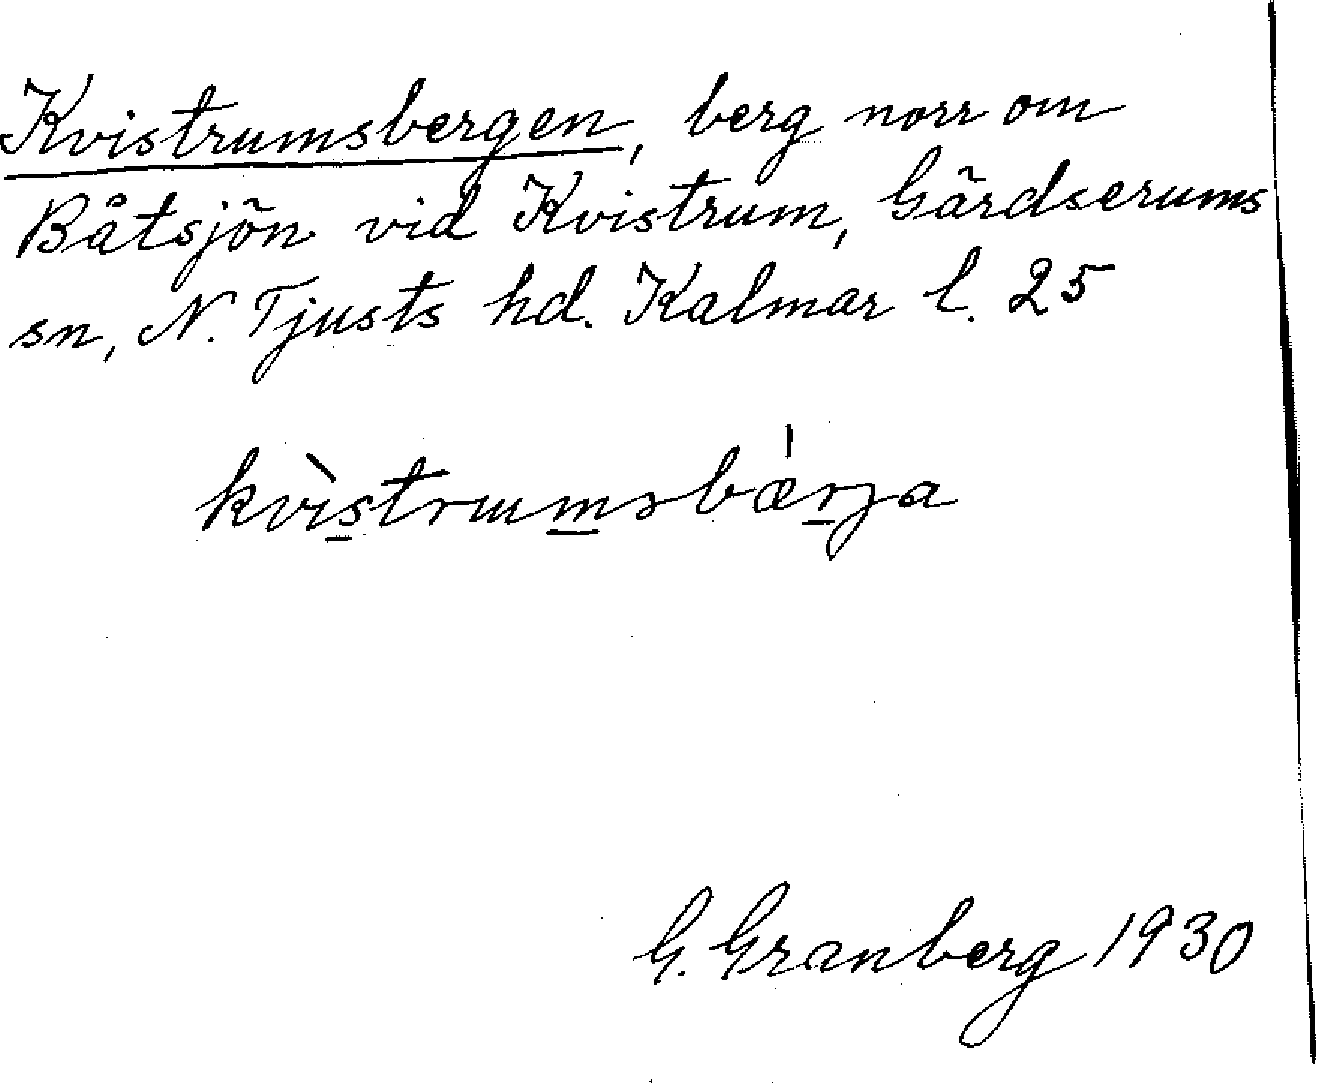 Kvistrumsbergen, berg norr om
Båtsjön vid Kvistrum, Gärdserums
sn, N. Tjusts hd. Kalmar l. 25
kvìstrumsbǽrja
G. Granberg 1930